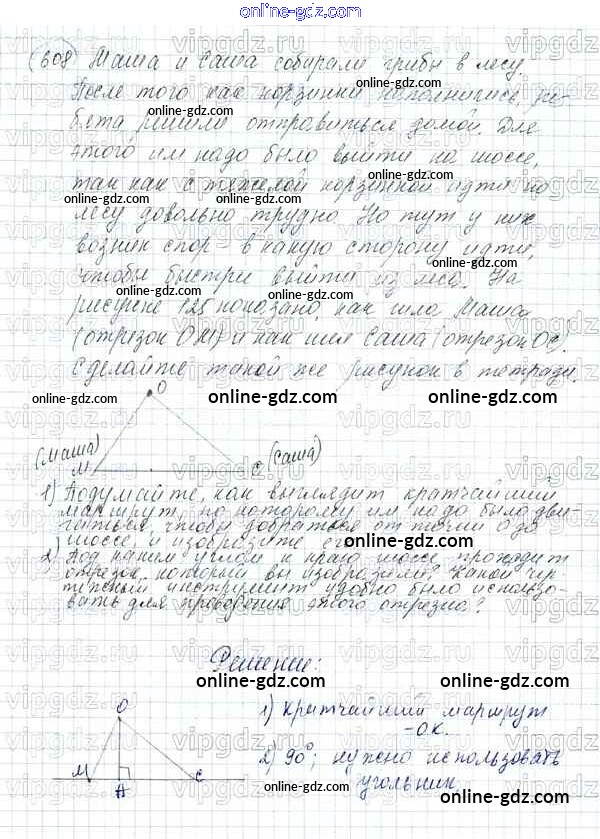 online-gdz.com
608 Маша и Саша собирали грибы в лесу.
После того как корзинки наполнились, ре-
бята решили отправиться домой. Для
этого им надо было выйти на шоссе,
так как с тяжелой корзинкой идти по
лесу довольно трудно. Но тут у них
возник спор - в какую сторону идти,
чтобы быстрее выйти из леса. На
рисунке 125 показано, как шла Маша
(отрезок ОМ) и как шел Саша (отрезок ОС).
Сделайте такой же рисунок в тетради.
О
(Маша)
М
С
(Саша)
1) Подумайте, как выглядит кратчайший
маршрут, по которому им надо было дви-
гаться, чтобы добраться от точки О до
шоссе, и изобразите его.
2) Под каким углом к краю шоссе проходит
отрезок, который вы изобразили? Какой чер-
тежный инструмент удобно было использо-
вать для проведения этого отрезка?
Решение:
О
М
Н
С
1) Кратчайший маршрут
- ОК.
2) 90°; нужно использовать
угольник.
online-gdz.com
vipgdz.ru